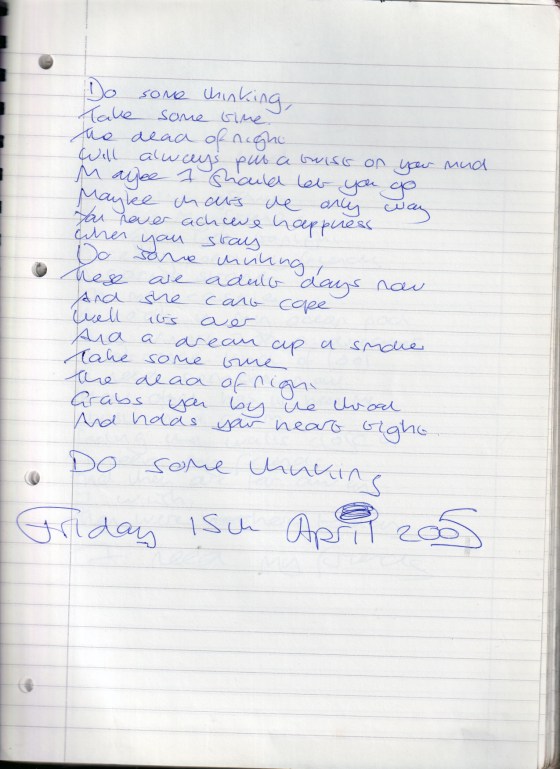 Do some thinking,
Take some time.
The dead of night
Will always put a twist on your mind
Maybe I should let you go
Maybe thats the only way
You never achieve happiness
When you stay
Do some thinking,
These are adult days now
And she cant cope
Well its over
And a dream up a smoke
Take some time
The dead of night
Grabs you by the throat
And holds your heart tight.
Do some thinking
Friday 15th April 2005